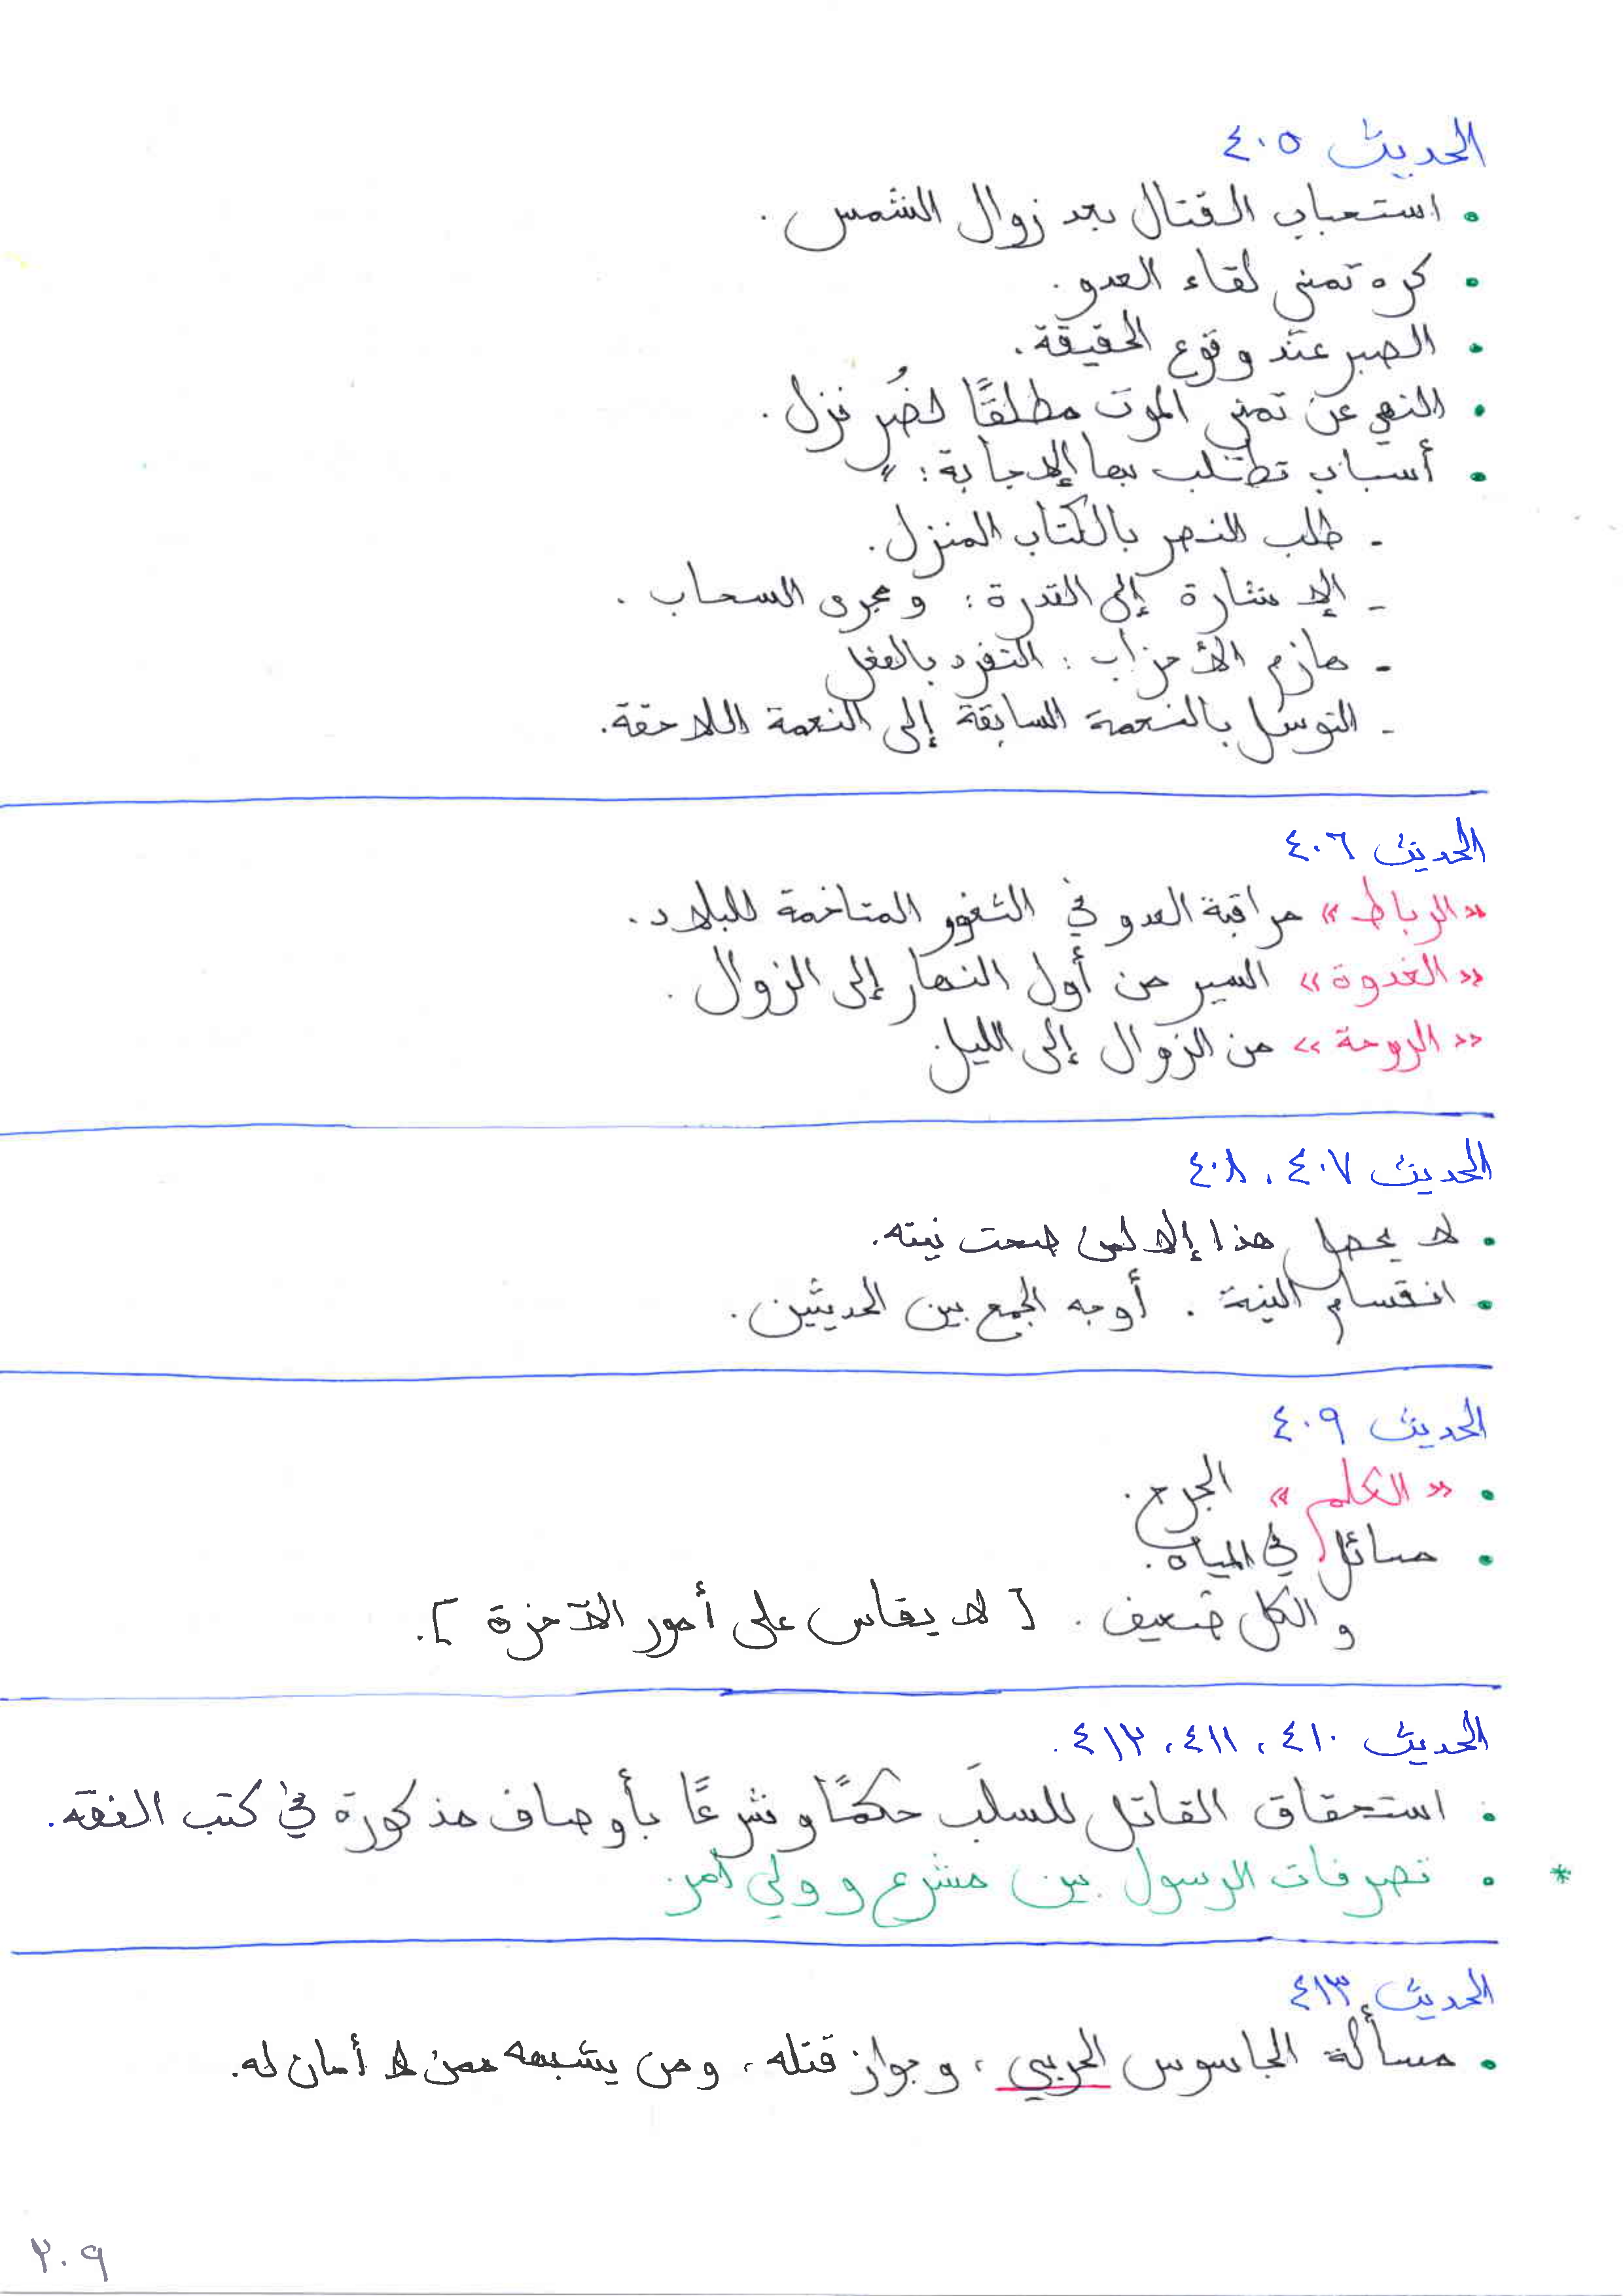 الحديث ٤٠٥
• استحباب القتال بعد زوال الشمس .
• كره تمني لقاء العدو .
• الصبر عند وقوع الحقيقة .
• النهي عن تمني الموت مطلقًا لضُر نزل .
• أسباب تطلب بها الإجابة :
- طلب النصر بالكتاب المنزل .
- الإشارة إلى القدرة : ومجرى السحاب .
- هازم الأحزاب : التفرد بالفعل
- التوسل بالنعمة السابقة إلى النعمة اللاحقة .
الحديث ٤٠٦
«الرباط» مراقبة العدو في الثغور المتاخمة للبلاد .
«الغدوة» السير من أول النهار إلى الزوال .
«الروحة» من الزوال إلى الليل
الحديث ٤٠٧ ، ٤٠٨
• لا يحصل هذا إلا لمن صحت نيته .
• انقسام النية . أوجه الجمع بين الحديثين .
الحديث ٤٠٩
• «الكلم» الجرح .
• مسائل في المياه .
والكل ضعيف . [ لا يقاس على أمور الآخرة ] .
الحديث ٤١٠ ، ٤١١ ، ٤١٢ .
• استحقاق القاتل للسلَب حكمًا وشرعًا بأوصاف مذكورة في كتب الفقه .
* • تصرفات الرسول بين مشرع وولي أمر
الحديث ٤١٣
• مسألة الجاسوس الحربي ، وجواز قتله ، ومن يشبهه ممن لا أمان له .
٢٠٩